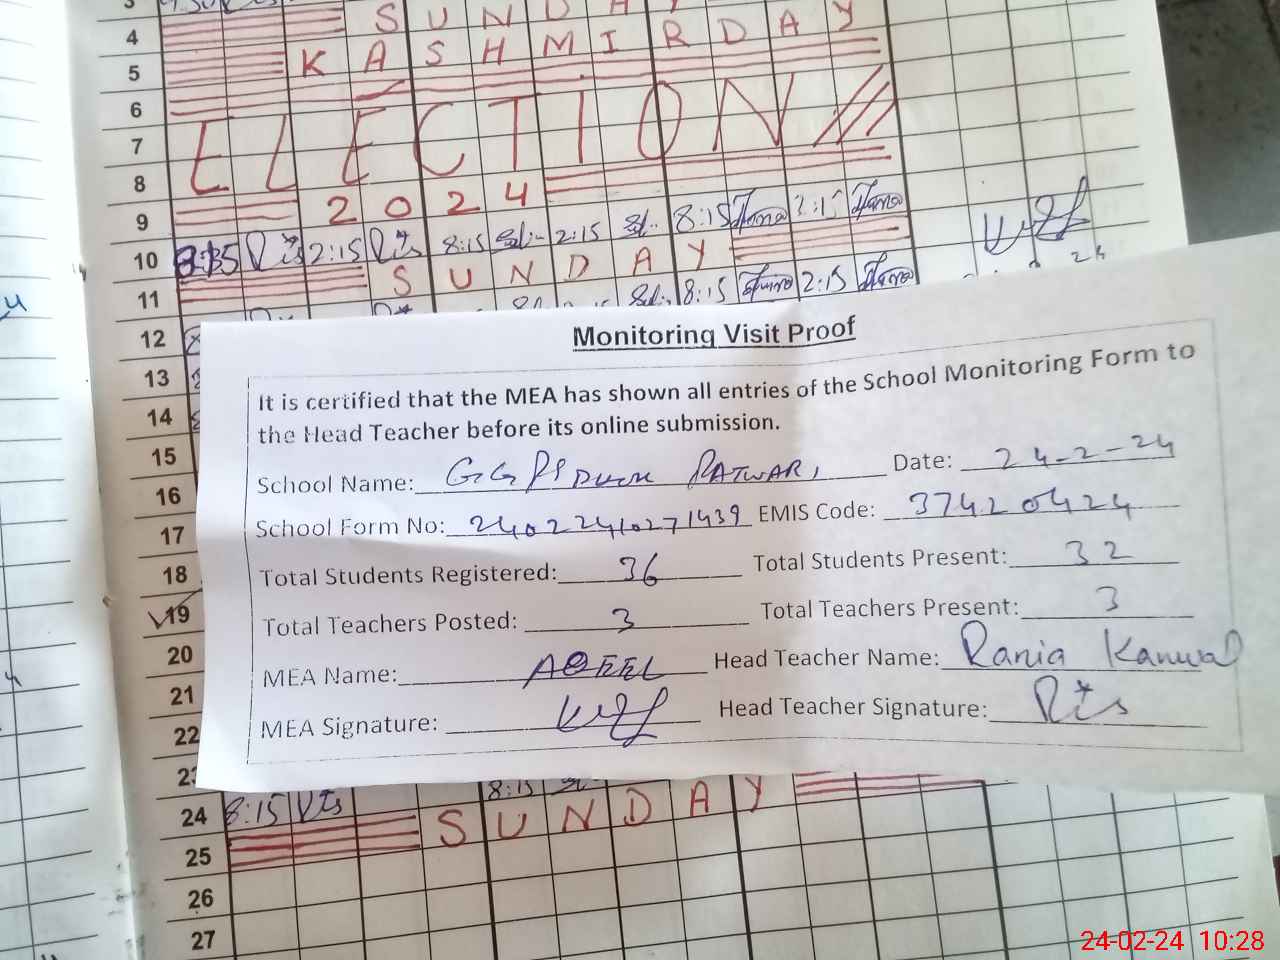 3
4 S U N D A Y
5 K A S H M I R D A Y
6
7 ELECTION
8
9 2 0 2 4
10 8:15 2:15 8:15 2:15 8:15 2:15
11 S U N D A Y
12 8:15 2:15
13
14
15
16
17
18
19
20
21
22
23
24 8:15 8:15
25 S U N D A Y
26
27
Monitoring Visit Proof
It is certified that the MEA has shown all entries of the School Monitoring Form to
the Head Teacher before its online submission.
School Name: GGPS RATWARI Date: 24-2-24
School Form No: 24022410271439 EMIS Code: 37420424
Total Students Registered: 36 Total Students Present: 32
Total Teachers Posted: 3 Total Teachers Present: 3
MEA Name: AQEEL Head Teacher Name: Rania Kanwal
MEA Signature: Head Teacher Signature:
24-02-24 10:28